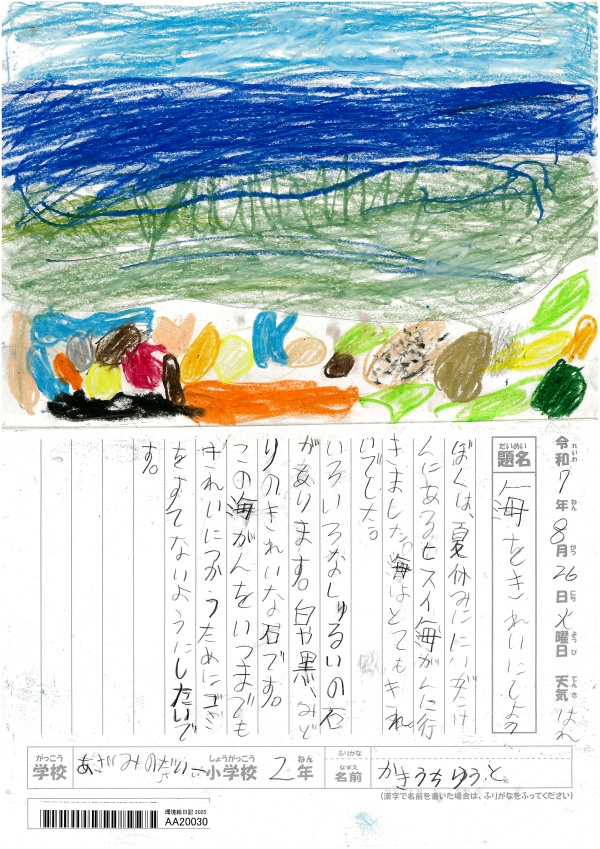 令和7年8月26日火曜日 天気 はれ
れいわ ねん がつ にち ようび てんき
だいめい
題名 海をきれいにしよう
ぼくは、夏休みににいがたけ
んにあるヒスイ海がんに行
きました。海はとてもきれ
いでした。
いろいろなしゅるいの石
があります。白や黒、みど
りのきれいな石です。
この海がんをいつまでも
きれいにつかうためにゴミ
をすてないようにしたいで
す。
がっこう しょうがっこう ねん ふりがな
学校 あざみのだいに小学校 2年 なまえ 名前 かきうちゆうと
(漢字で名前を書いた場合は、ふりがなをふってください)
環境絵日記 2025
AA20030